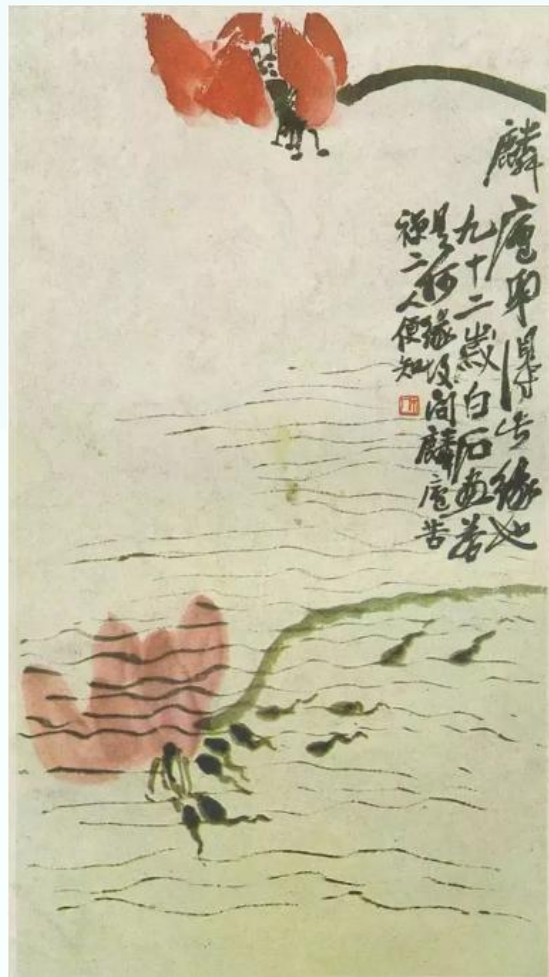 麟廬弟得此緣也
九十二歲白石畫若
是何緣故問麟廬苦
禪二人便知